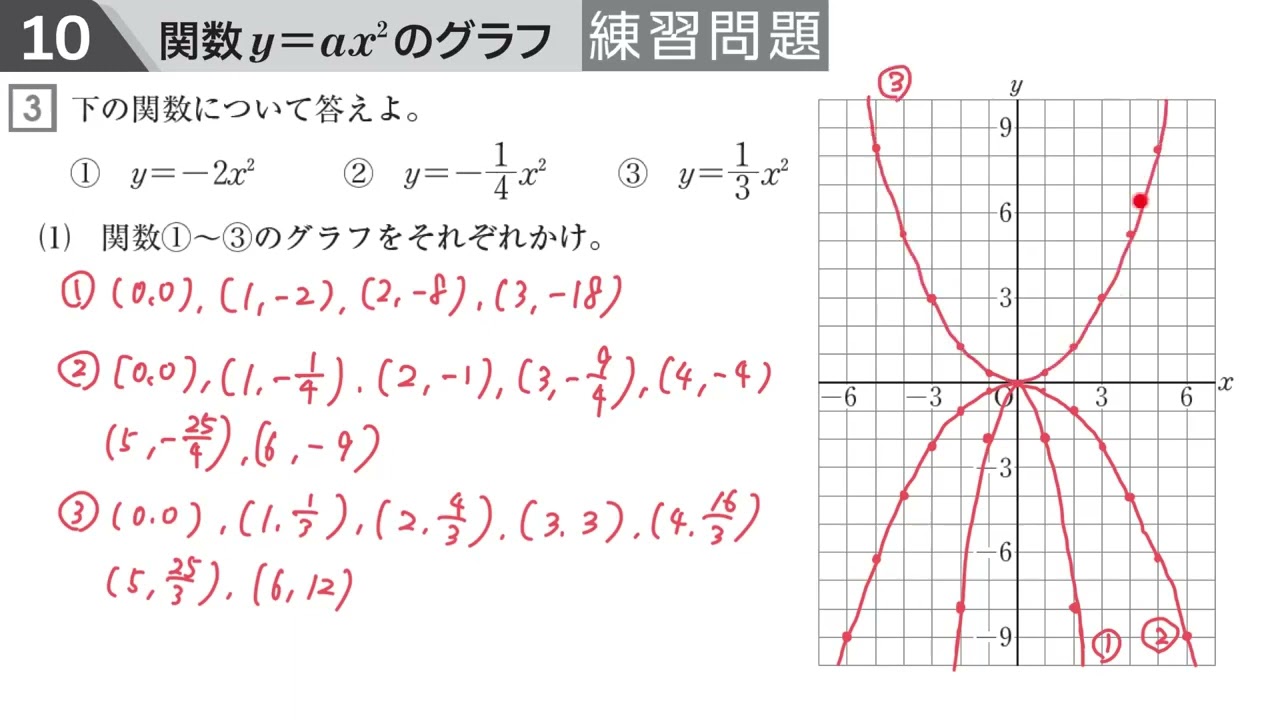 10 関数 y=ax²のグラフ 練習問題
3 下の関数について答えよ。
① y=-2x² ② y=-\frac{1}{4}x² ③ y=\frac{1}{3}x²
(1) 関数①～③のグラフをそれぞれかけ。
① (0,0), (1,-2), (2,-8), (3,-18)
② (0,0), (1,-\frac{1}{4}), (2,-1), (3,-\frac{9}{4}), (4,-4)
(5,-\frac{25}{4}), (6,-9)
③ (0,0), (1,\frac{1}{3}), (2,\frac{4}{3}), (3,3), (4,\frac{16}{3})
(5,\frac{25}{3}), (6,12)
③
y
9
6
3
-6 -3 O 3 6 x
-3
-6
-9 ① ②